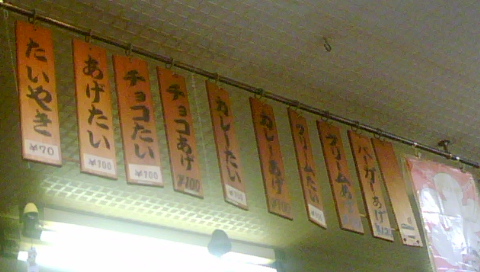 たいやき
¥70
あげたい
¥100
チョコたい
¥100
チョコあげ
¥100
カレーたい
カレーあげ
クリームたい
クリームあげ
バーガーあげ